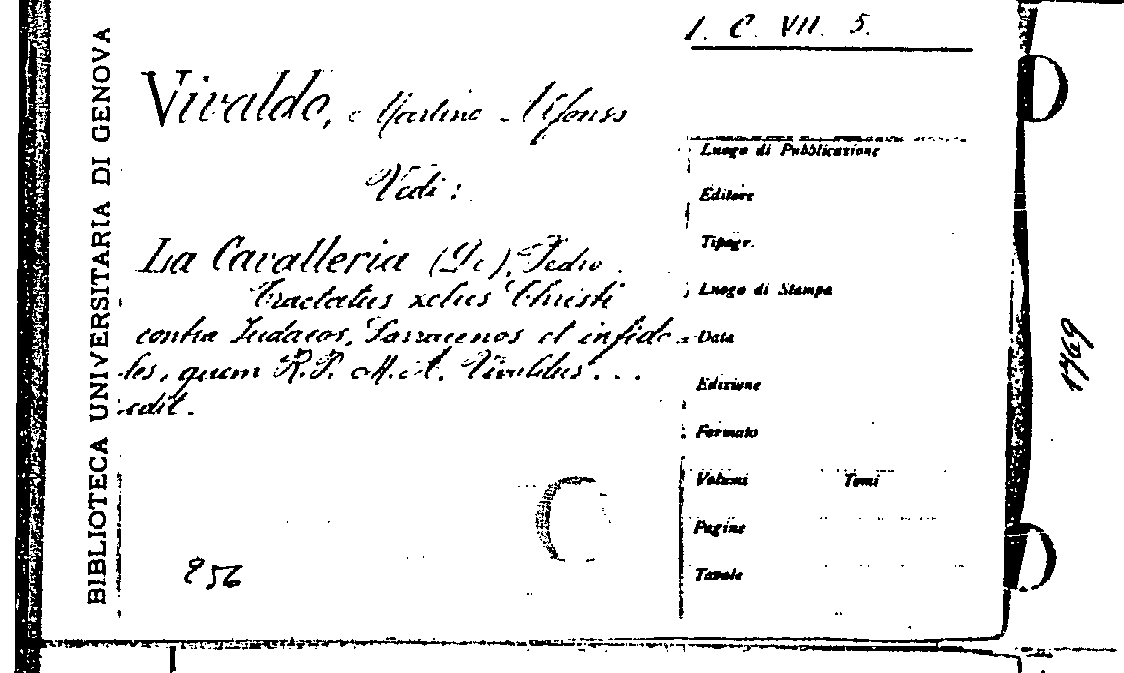 1. C. VII. 5.
BIBLIOTECA UNIVERSITARIA DI GENOVA
Vivaldo, Martino Alfonso
Vedi:
La Cavalleria (De), Pedro.
Tractatus zelus Christi
contra Iudaeos, Sarracenos et infide-
les, quem R. P. M. A. Vivaldus...
edit.
856
Luogo di Pubblicazione
Editore
Tipogr.
Luogo di Stampa
Data
Edizione
Formato
Volumi Tomi
Pagine
Tavole
1769